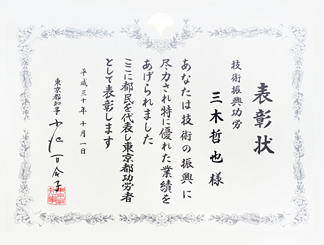 表彰状
技術振興功労
三木哲也様
あなたは技術の振興に
尽力され特に優れた業績を
あげられました
ここに都民を代表し東京都功労者
として表彰します
平成三十年十月一日
東京都知事 小池百合子